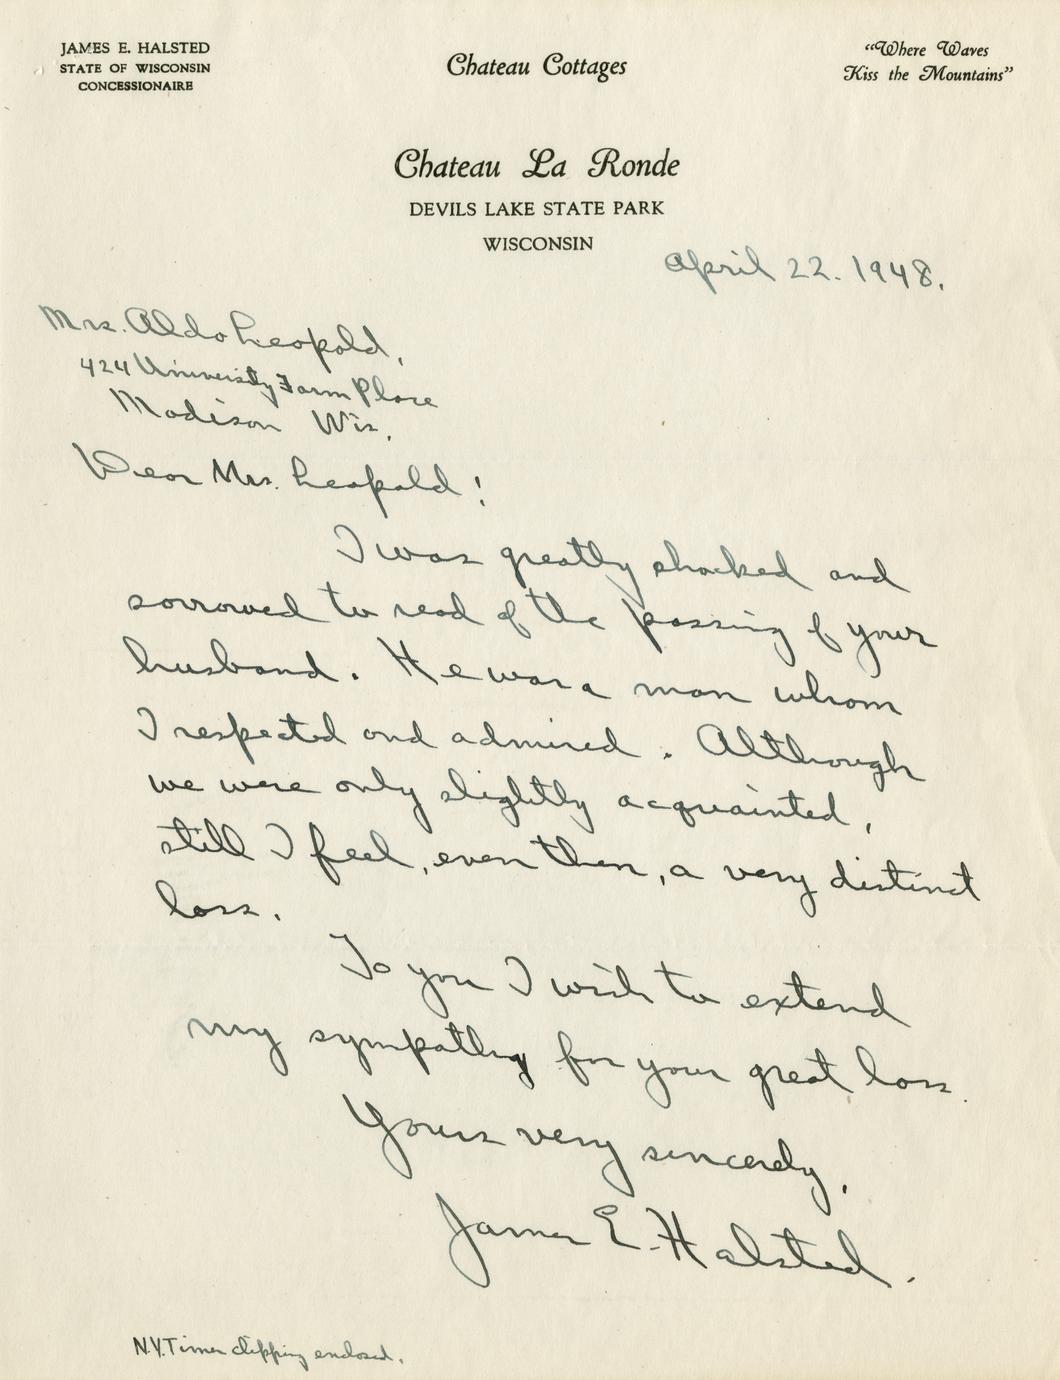 JAMES E. HALSTED
STATE OF WISCONSIN
CONCESSIONAIRE
Chateau Cottages
“Where Waves
Kiss the Mountains”
Chateau La Ronde
DEVILS LAKE STATE PARK
WISCONSIN
April 22. 1948.
Mrs. Aldo Leopold,
424 University Farm Place
Madison Wis.
Dear Mrs. Leopold!
I was greatly shocked and
sorrowed to read of the passing of your
husband. He was a man whom
I respected and admired. Although
we were only slightly acquainted,
still I feel, even then, a very distinct
loss.
To you I wish to extend
my sympathy for your great loss.
Yours very sincerely,
James E. Halsted.
N.Y. Times clipping enclosed.